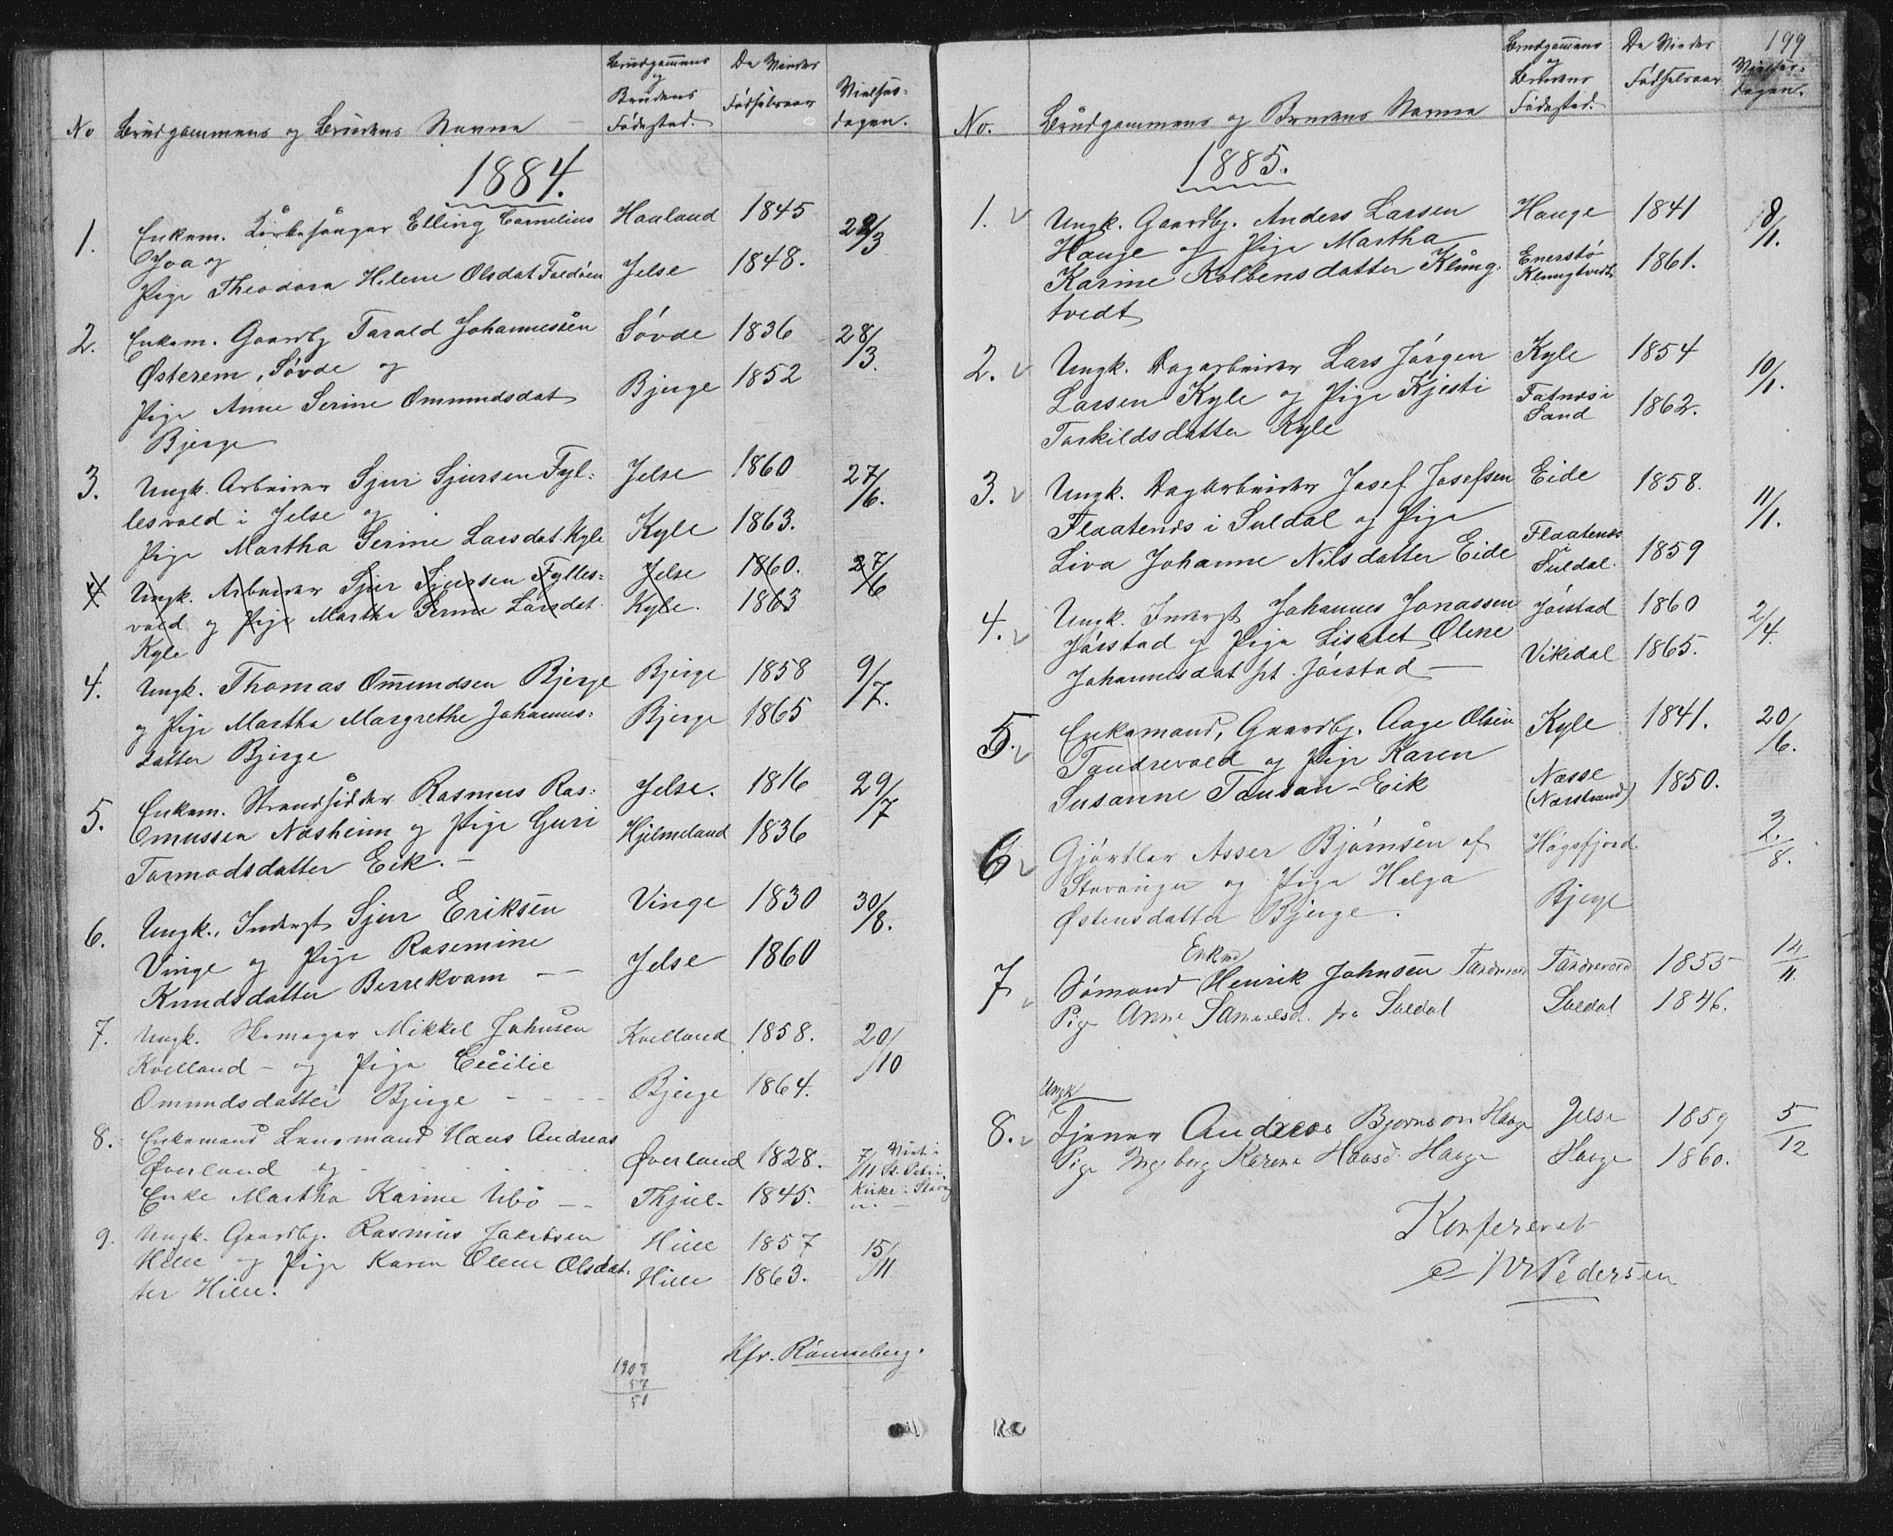 No Brudgommens og Brudens Navne
Brudgommens og Brudens Fødested.
De Viedes Fødselsaar
Vielses-dagen.
1884.
1. Enkem. Kirkesanger Elling Cornelius Hauland 1845 28/3
Joa og
Pige Theodora Helene Olsdat Foldøen Jelse 1848.
2. Enkem. Gaardbr Tarald Johannessen Søvde 1836 28/3.
Østerem, Søvde og
Pige Anne Serine Omundsdat Bjerge 1852
Bjerge
3. Ungk. Arbeider Sjur Sjursen Fyl- Jelse 1860 27/6.
lesvold i Jelse og
Pige Martha Serine Larsdat. Kyle Kyle 1863.
4 Ungk. Arbeider Sjur Sjursen Fylles- Jelse 1860. 27/6
vold og Pige Martha Serine Larsdat. Kyle. 1863
Kyle
4. Ungk. Thomas Omundsen Bjerge Bjerge 1858 9/7.
og Pige Martha Margrethe Johannes- Bjerge 1865
datter Bjerge
5. Enkem. Strandsidder Rasmus Ras- Jelse. 1816 29/7
mussen Næsheim og Pige Guri Hjelmeland 1836
Tormodsdatter Eik. –
6. Ungk., Inderst Sjur Eriksen Vinge 1830 30/8.
Vinge og Pige Rasemine
Knudsdatter Berrekvam – – Jelse 1860
7. Ungk. Skomager Mikkel Johnsen Kvelland 1858. 20/10
Kvelland – og Pige Cecilie
Omundsdatter Bjerge – – – Bjerge 1864.
8. Enkemand Lensmand Hans Andreas
Øverland og Øverland 1828. 7/11 Viet i St. Petri
Enke Martha Karine Ubø – – Thjul- 1845. Kirke i
9. Ungk. Gaardbr. Rasmus Jakobsen Hille 1857 15/11
Hille og Pige Karen Olene Olsdat- Hille 1863.
ter Hille.
Kfr. Rønneberg.
1907
57
51
199
No. Brudgommens og Brudens Navne
Brudgommens og Brudens Fødested.
De Viedes Fødselsaar
Vielses-dagen.
1885.
1. Ungk. Gaardbr. Anders Larsen Hauge 1841 8/1.
Hauge og Pige Martha
Karine Kolbensdatter Klung- Enerstø Klungtvedt 1861.
tvedt
2. Ungk. Dagarbeider Lars Jørgen Kyle 1854 10/1.
Larsen Kyle og Pige Kjersti Fatnes i Sand 1862.
Torkildsdatter Kyle
3. Ungk. Dagarbeider Josef Josefsen Eide 1858. 11/1.
Flaatenes i Suldal og Pige
Liva Johanne Nilsdatter Eide Flaatenes Suldal. 1859
4. Ungk. Inderst Johannes Jonassen Jørstad 1860 2/4
Jørstad og Pige Lisabet Oline
Johannesdat pt. Jørstad – Vikedal 1865.
5. Enkemand, Gaardbr. Aage Olsen Kyle 1841. 20/6.
Tandrevold og Pige Karen
Susanne Tausan-Eik Næsse (Nærstrand) 1850.
6 Gjørtler Asser Bjørnsen af Høgsfjord. 2./8.
Stavanger og Pige Helga
Østensdatter Bjerge. Bjerge
Enkmd
7 Sømand Henrik Johnsen Tandrevold Tandrevold 1855 14/11
Pige Anne Samuelsd. fra Suldal Suldal 1846.
Ungk
8. Tjener Andreas Bjørnson Hauge Jelse 1859 5/12
Pige Ingeborg Karine Hansd. Hauge Hauge 1860.
Konfereret
Pedersen